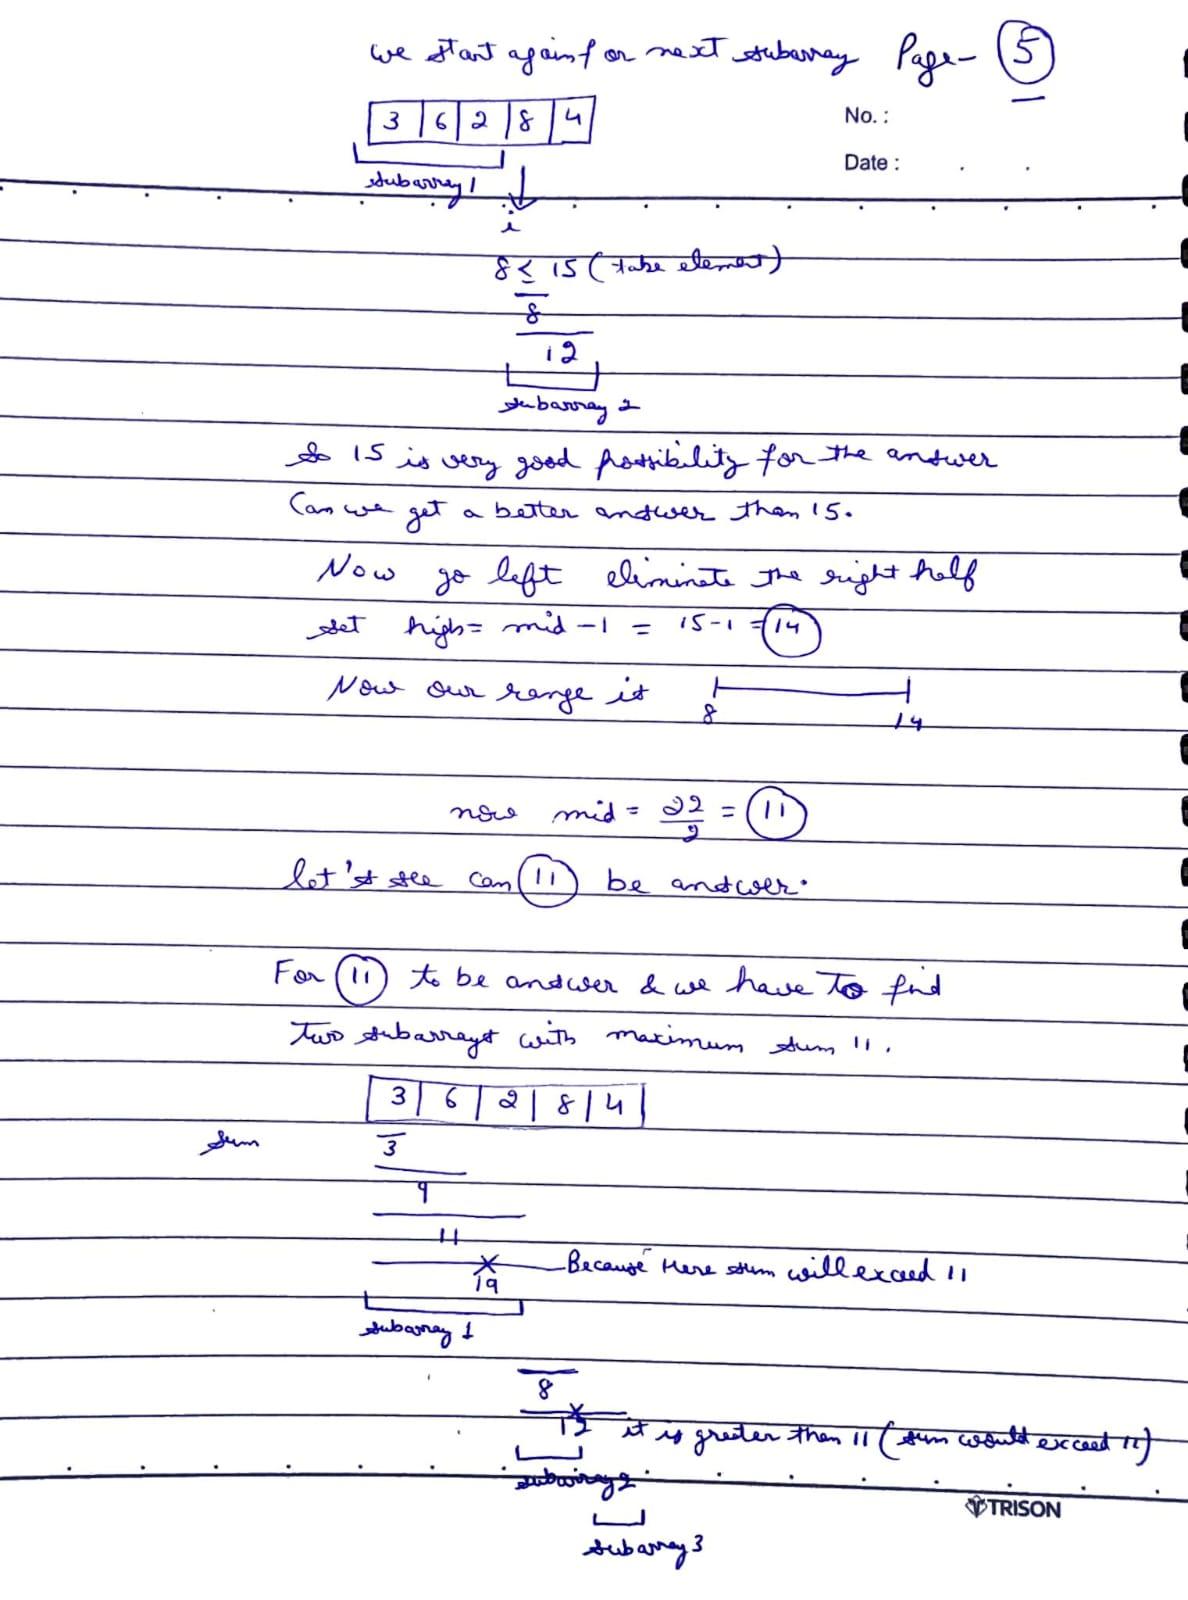 we start again for next subarray Page- 5
3 6 2 8 4
No. :
Date : . .
subarray 1
i
8 ≤ 15 (take element)
8
12
subarray 2
So 15 is very good possibility for the answer
Can we get a better answer than 15.
Now go left eliminate the right half
set high = mid - 1 = 15-1 = 14
Now our range is
8 14
now mid = 22/2 = 11
let's see can 11 be answer.
For 11 to be answer & we have to find
two subarrays with maximum sum 11.
3 6 2 8 4
sum 3
9
11
Because Here sum will exceed 11
19
subarray 1
8
12 it is greater than 11 (sum would exceed 11)
subarray 2
TRISON
subarray 3